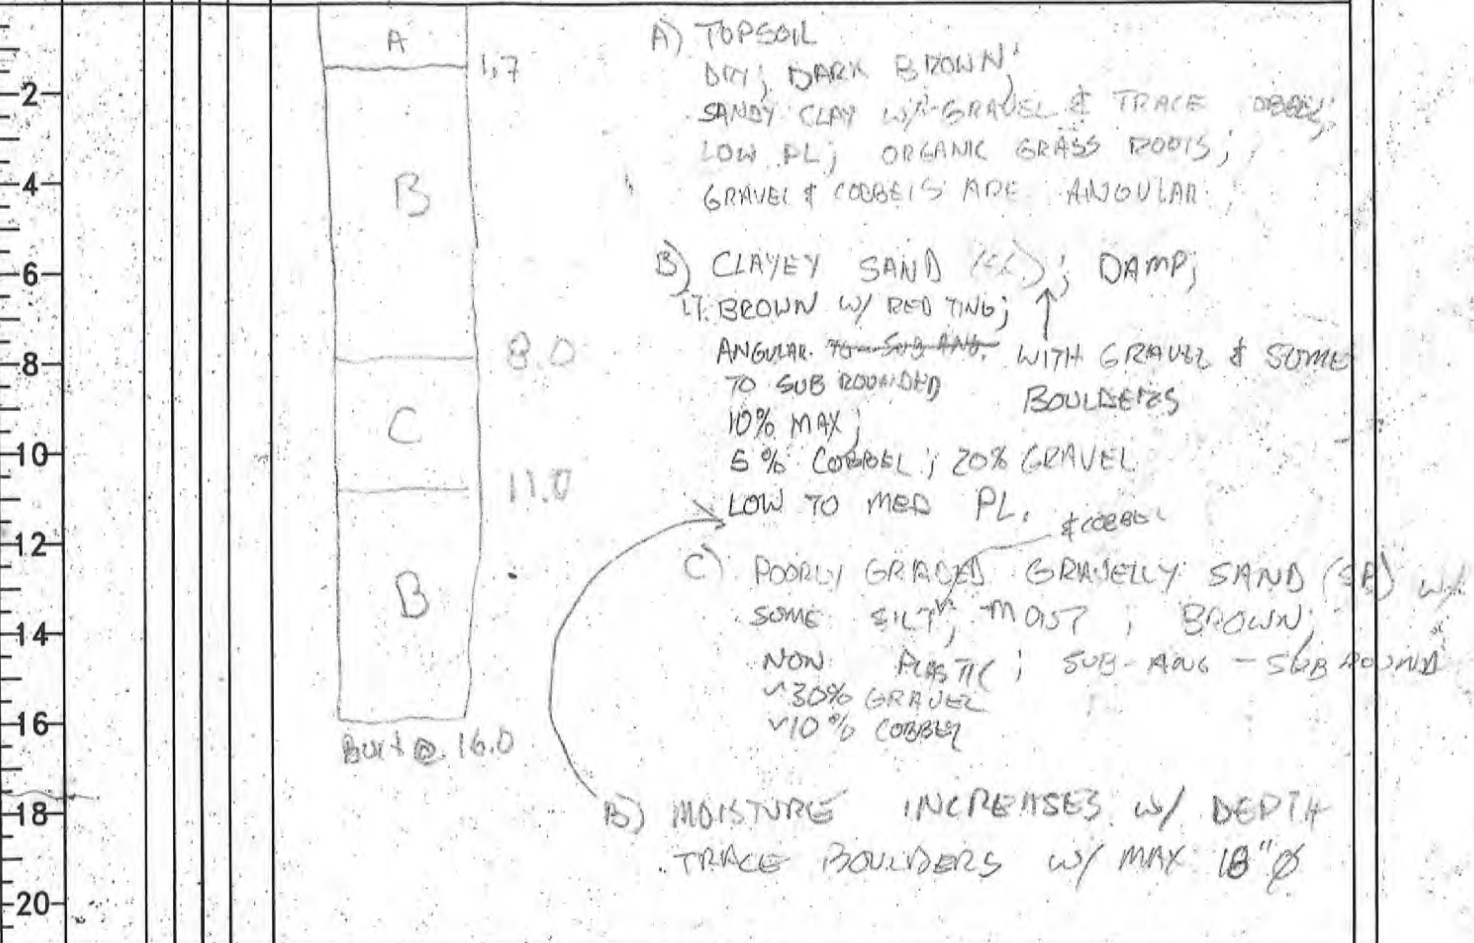 A
1.7
2
B
4
6
8.0
8
C
10
11.0
12
B
14
16
BOH @ 16.0
18
20
A) TOPSOIL
DRY; DARK BROWN;
SANDY CLAY W/ GRAVEL & TRACE
LOW PL; ORGANIC GRASS ROOTS;
GRAVEL & COBBELS ARE ANGULAR
B) CLAYEY SAND ; DAMP;
LT. BROWN W/ RED TING;
ANGULAR TO SUB ANG. WITH GRAVEL & SOME
TO SUB ROUNDED BOULDERS
10% MAX;
5% COBBEL; 20% GRAVEL
LOW TO MED PL.
& COBBEL
C) POORLY GRADED GRAVELLY SAND (SP) W/
SOME SILT; MOIST; BROWN;
NON PLASTIC; SUB-ANG - SUB ROUND
~30% GRAVEL
~10% COBBEL
B) MOISTURE INCREASES W/ DEPTH
TRACE BOULDERS W/ MAX 18"Ø